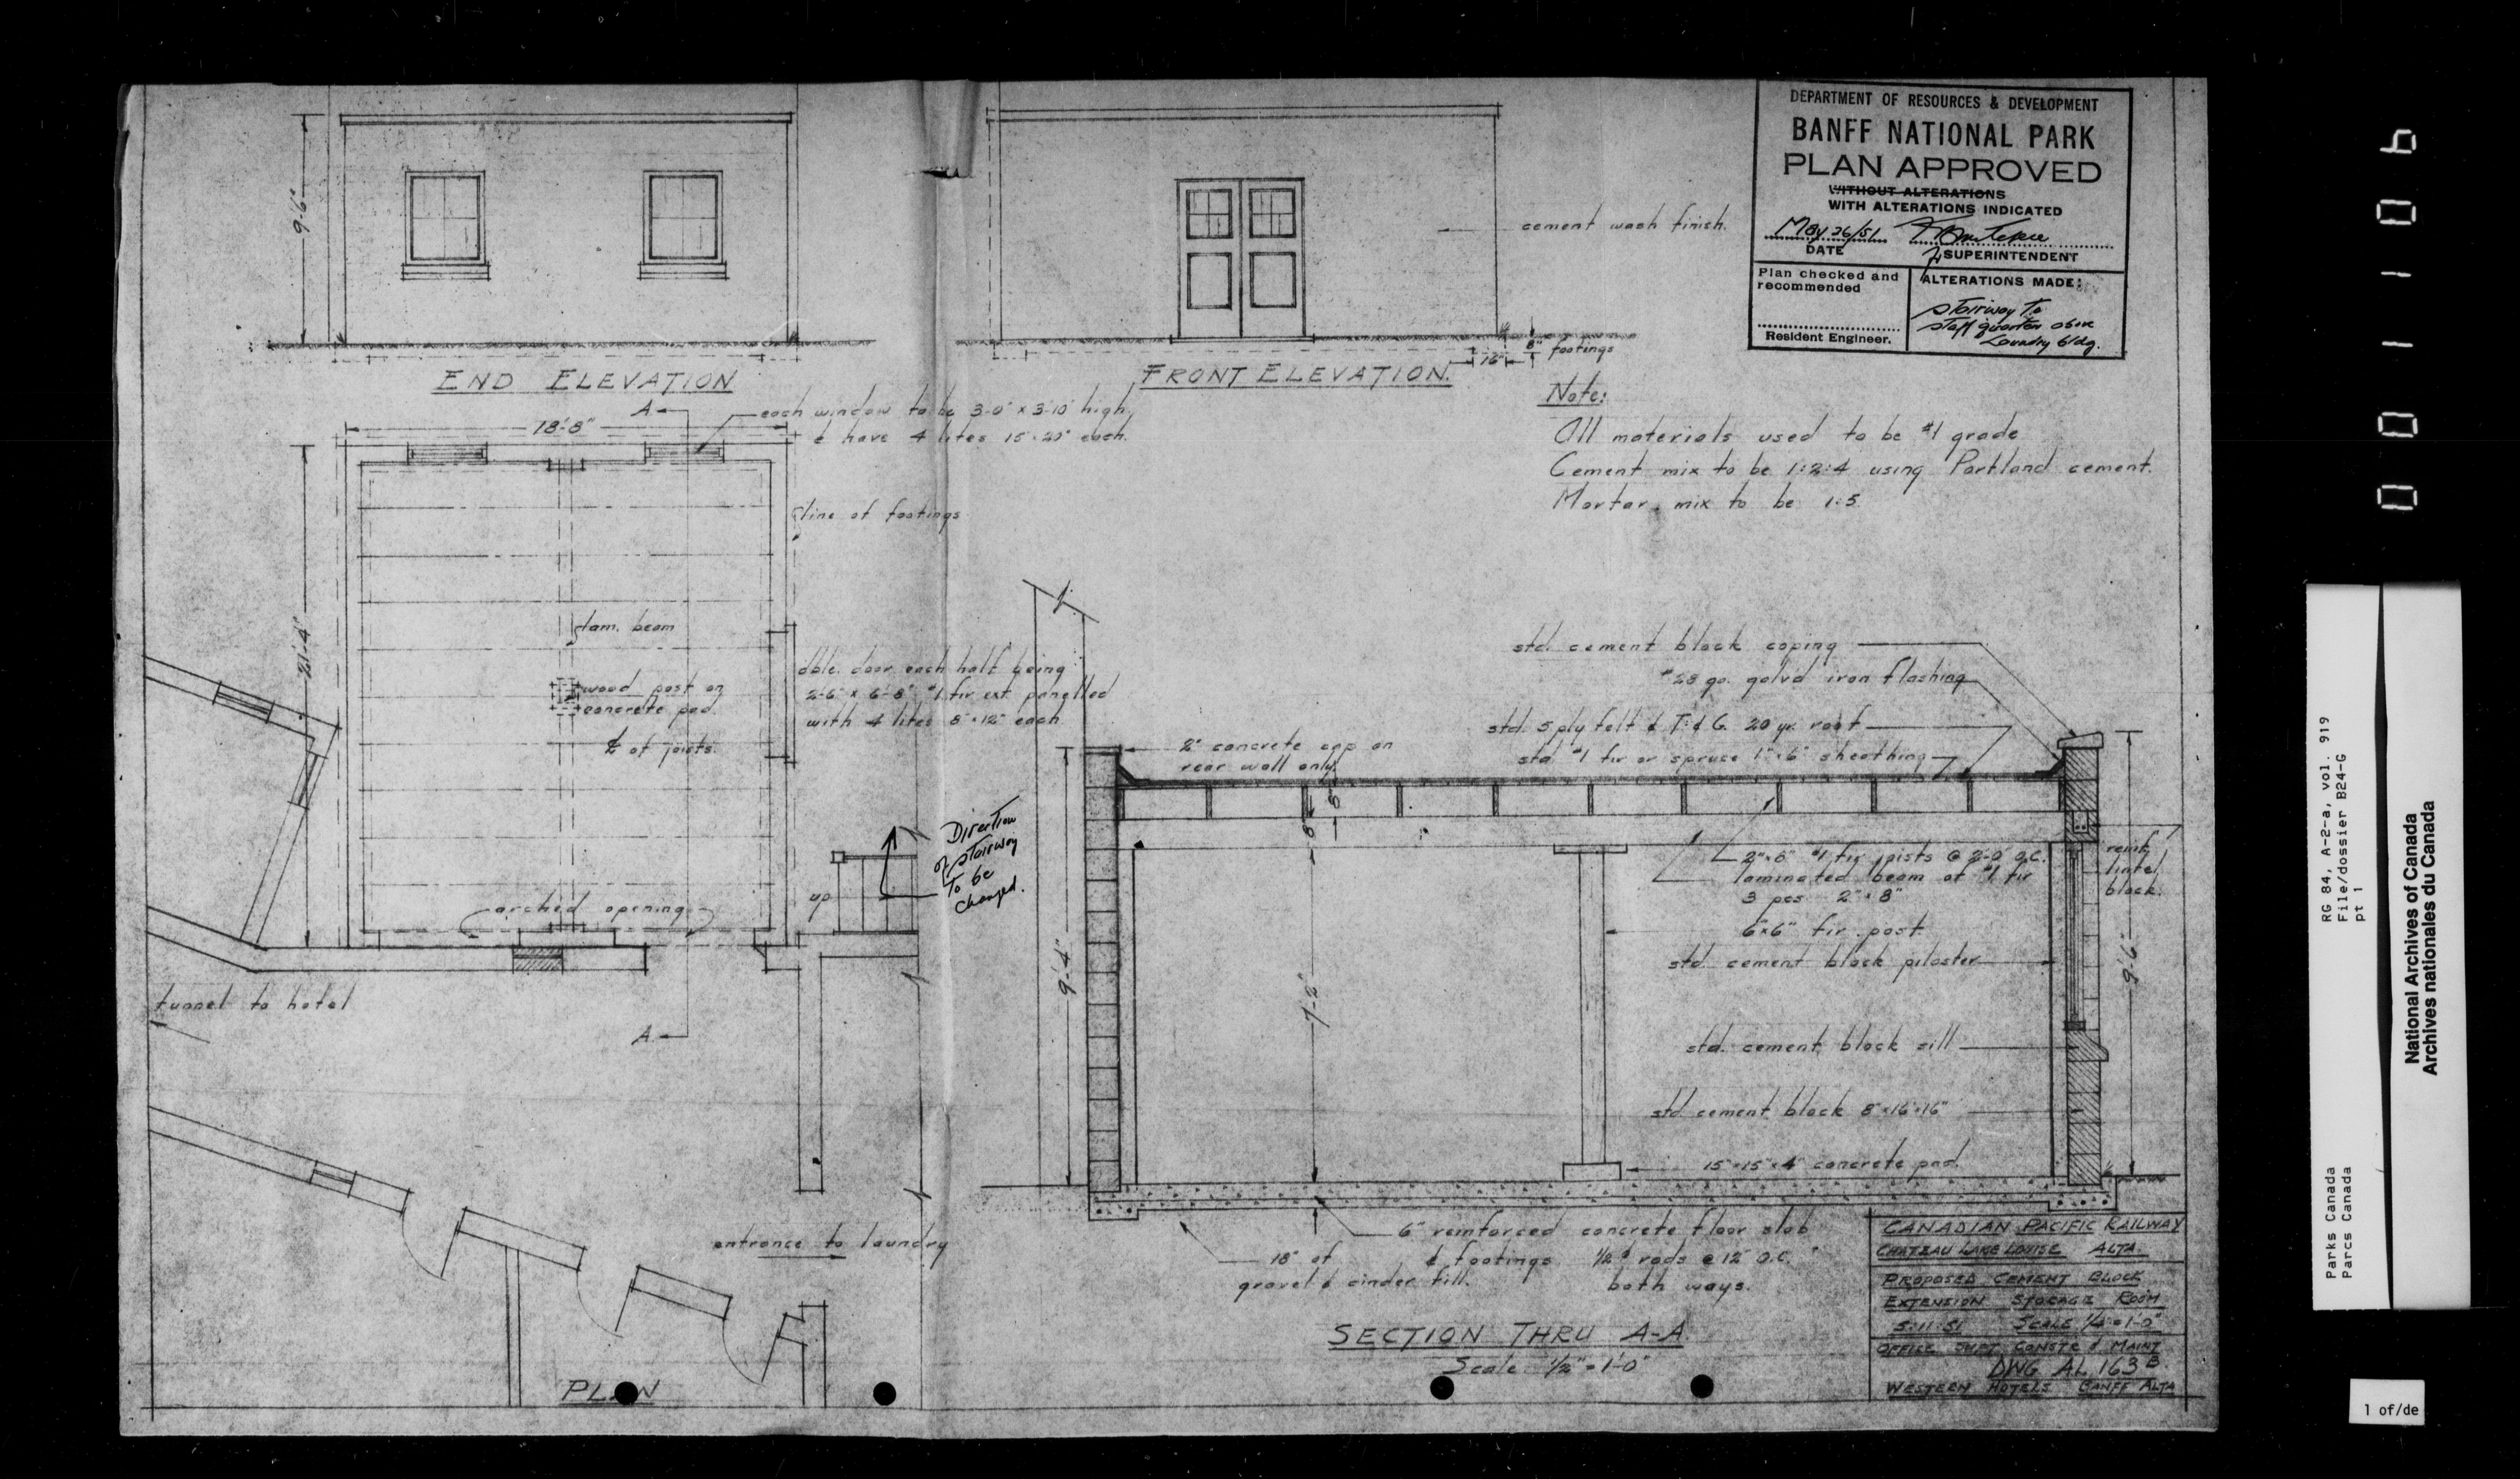 DEPARTMENT OF RESOURCES & DEVELOPMENT
BANFF NATIONAL PARK
PLAN APPROVED
WITHOUT ALTERATIONS
WITH ALTERATIONS INDICATED
May 26/51
DATE
SUPERINTENDENT
Plan checked and
recommended
Resident Engineer.
ALTERATIONS MADE:
Stairway To
Staff quarters above
Laundry bldg.
9'-6"
END ELEVATION
cement wash finish.
8"
footings
16"
FRONT ELEVATION.
Note:
All materials used to be #1 grade
Cement mix to be 1:2:4 using Portland cement.
Mortar mix to be 1:5
A
18'-8"
each window to be 3'-0" x 3'-10" high,
& have 4 lites 15" x 20" each.
line of footings
21'-4"
lam. beam
wood post on
concrete pad.
℄ of joists.
dble. door each half being
2'-6" x 6'-8" #1 fir ext. panelled
with 4 lites 8" x 12" each
Direction
of stairway
To be
changed.
up
arched opening
tunnel to hotel
A
entrance to laundry
PLAN
std. cement block coping
#28 ga. galv'd iron flashing
std. 5 ply felt & T. & G. 20 yr. roof
std. #1 fir or spruce 1" x 6" sheathing
2" concrete cap on
rear wall only.
8"
8"
2" x 8" #1 fir joists @ 2'-0" O.C.
laminated beam of #1 fir
3 pcs 2" x 8"
reinf.
lintel
block.
6" x 6" fir post.
std. cement block pilaster
9'-4"
7'-2"
9'-6"
std. cement block sill
std. cement block 8" x 16" x 16"
15" x 15" x 4" concrete pad.
6" reinforced concrete floor slab
& footings 1/2"ø rods @ 12" O.C.
both ways.
18" of
gravel & cinder fill.
SECTION THRU A-A
Scale 1/2" = 1'-0"
CANADIAN PACIFIC RAILWAY
CHATEAU LAKE LOUISE ALTA.
PROPOSED CEMENT BLOCK
EXTENSION STORAGE ROOM
5:11:51 SCALE 1/4" = 1'-0"
OFFICE SUPT CONSTR & MAINT
DWG AL 163 B
WESTERN HOTELS BANFF ALTA
RG 84, A-2-a, vol. 919
File/dossier B24-G
pt 1
Parks Canada
Parcs Canada
National Archives of Canada
Archives nationales du Canada
1 of/de